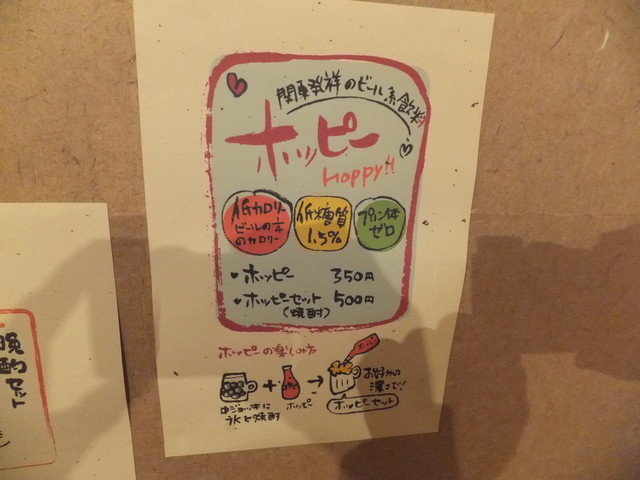 関東発祥のビール系飲料
ホッピー
hoppy!!
低カロリー
ビールの1/4
のカロリー
低糖質
1.5%
プリン体
ゼロ
・ホッピー 350円
・ホッピーセット 500円
(焼酎)
ホッピーの楽しみ方
ホッピー
中ジョッキに
氷と焼酎
ホッピー
お好みの
濃さで!
ホッピーセット
晩酌セット